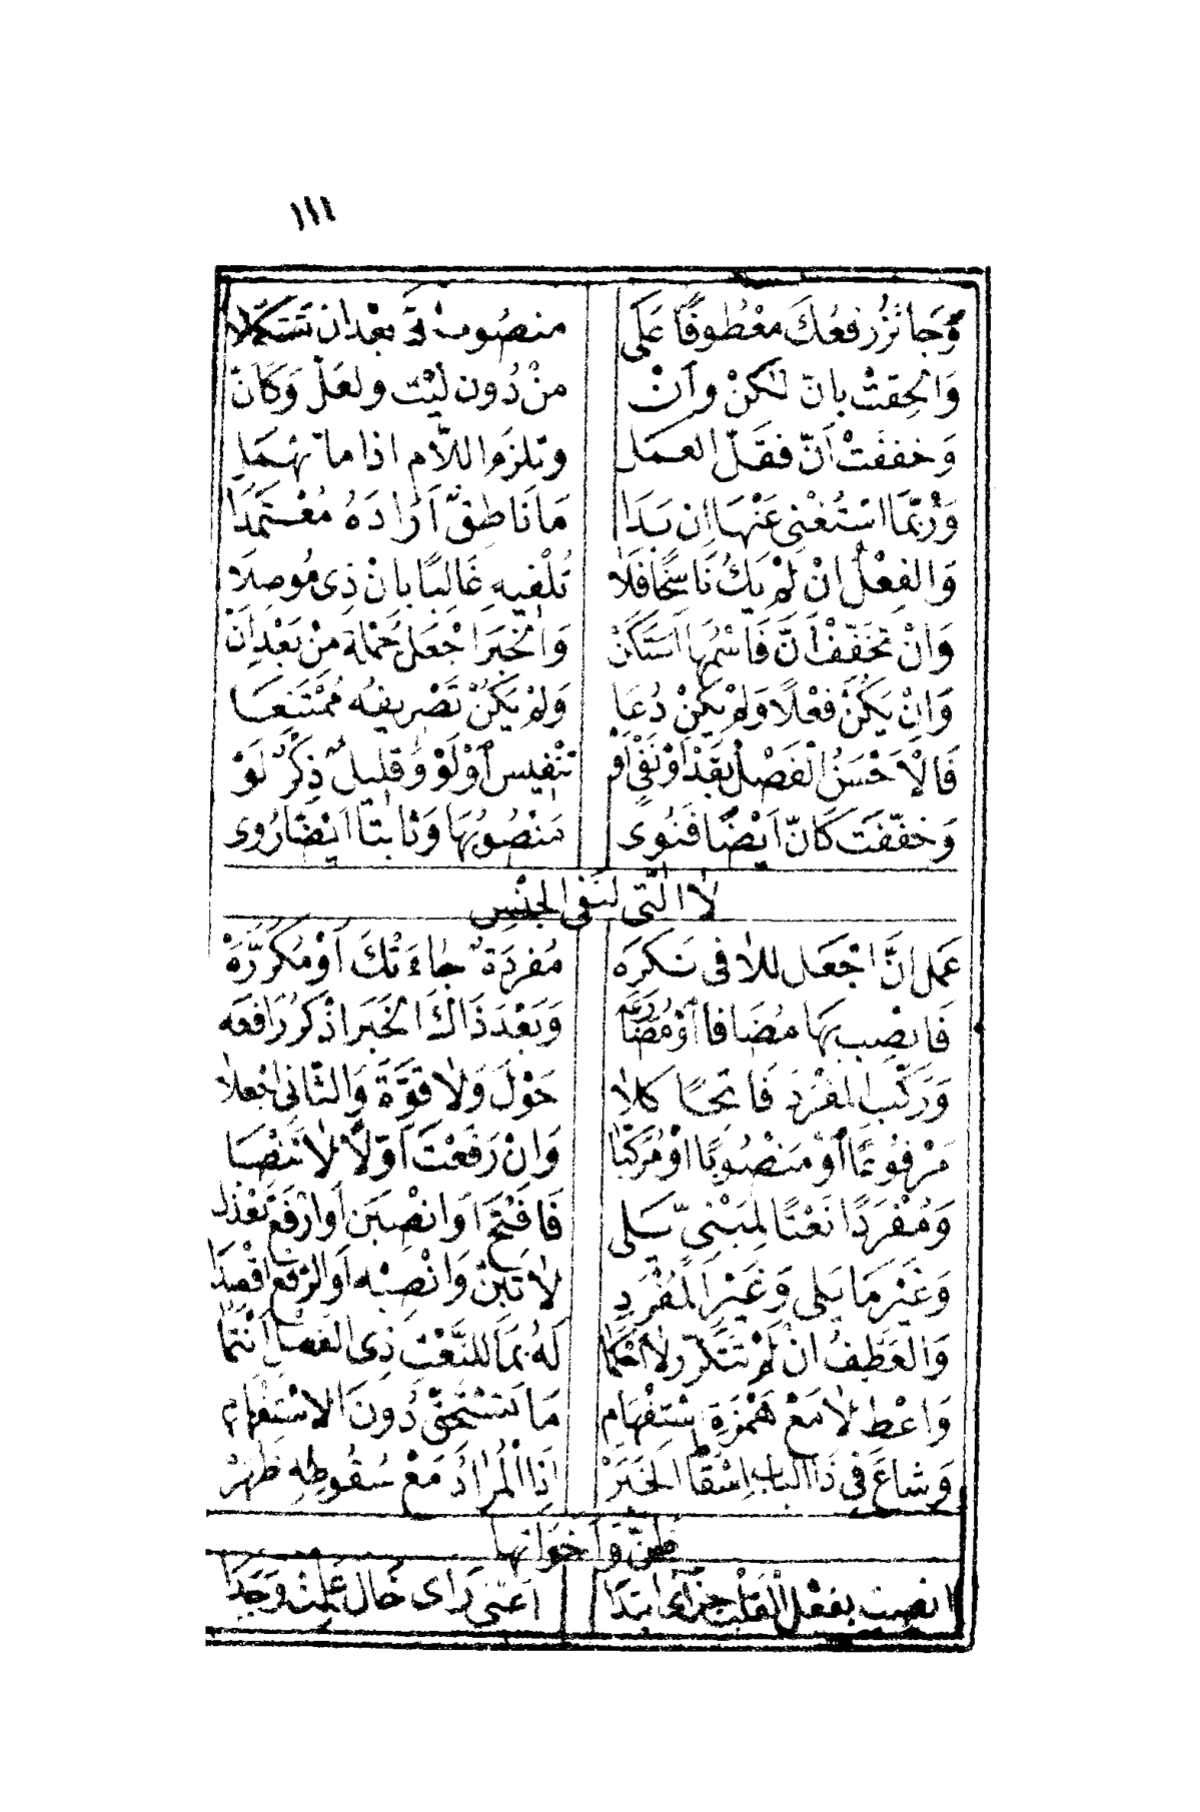 ١١١
وَجَائزٌ رفعُكَ مَعْطُوفًا عَلَى منصُوب انّ بعْدَ ان تَسْتَكْمِلَا
وَالْحِقَتْ بانّ لٰكنْ وأنْ منْ دُون لَيْت ولعَلّ وَكَانّ
وَخففَتْ انّ فقَلّ العمَل وتلزَم اللّام اذا ما تهْمَل
وَرُبّمَا اسْتُغْنى عَنْهَا ان بَدَا مَا نَاطِقٌ أَرَادَهُ مُعْتَمِدَا
وَالفِعْلُ انْ لمْ يَكُ نَاسِخًا فَلَا تُلْفِيهِ غَالبًا بانْ ذِى مُوصلَا
وَانْ تخَفّفْ أنّ فَاسْمُهَا اسْتَكَنْ وَالْخَبَرَ اجْعَلْ جُمْلة مِنْ بَعْدِ انْ
وَانْ يَكُنْ فعْلًا وَلمْ يَكنْ دُعَا وَلمْ يَكنْ تَصْريفُه مُمْتَنعَا
فَالْاحْسَنُ الْفَصْلُ بقَدْ اوْ نَفْىٍ اوْ تنْفيس أوْ لَوْ وَقليلٌ ذِكْرُ لَوْ
وَخفّفَت كَانّ ايْضًا فَنُوى مَنْصُوبُهَا وَثابتًا ايْضًا رُوى
لا الّتى لنفى الجنْسِ
عَمل انَّ اجْعَل للا فى نَكرَه مُفردَةً جاءَتْكَ أَوْ مُكَرَّرَهْ
فَانصب بهَا مُضَافا أوْ مُضَارعَه وَبَعْدَ ذَاكَ الْخبَرَ اذْكرْ رَافعَه
وَرَكّب المُفْرَدَ فَاتحًا كلا حَوْلَ وَلا قوَّةَ وَالثّانى اجْعلا
مَرْفُوعًا أوْ مَنْصُوبًا اوْ مُرَكّبَا وَانْ رَفعْتَ اَوّلًا لا تَنْصبَا
وَمُفْرَدًا نَعْتًا لِمَبْنىّ يَلى فَافْتَحْ اَوانْصِبَن اوارْفَع تَعْدل
وَغَيْرَ مَا يَلى وَغَيْرَ الْمُفْرَدِ لا تَبْن وَانْصِبْه اَو الرّفع اقصدَا
وَالعَطفُ انْ لمْ تَتَكَرّر لا احْكمَا لهُ بمَا للنّعْت ذى الفصل انْتمَا
وَاعْط لا مَعْ هَمْزَةِ اسْتفْهَام مَا تسْتَحقّ دُونَ الاسْتفهام
وَشاعَ فى ذَا الباب اسْقَاطُ الْخَبَرْ اذَا الْمُرَادُ مَعْ سُقُوطِهِ ظَهَرْ
ظنّ وَأخوَاتها
انصب بفعْل القَلْب جزأى ابتدَا اعنى رَاى خَالَ عَلمْت وَجَدَا